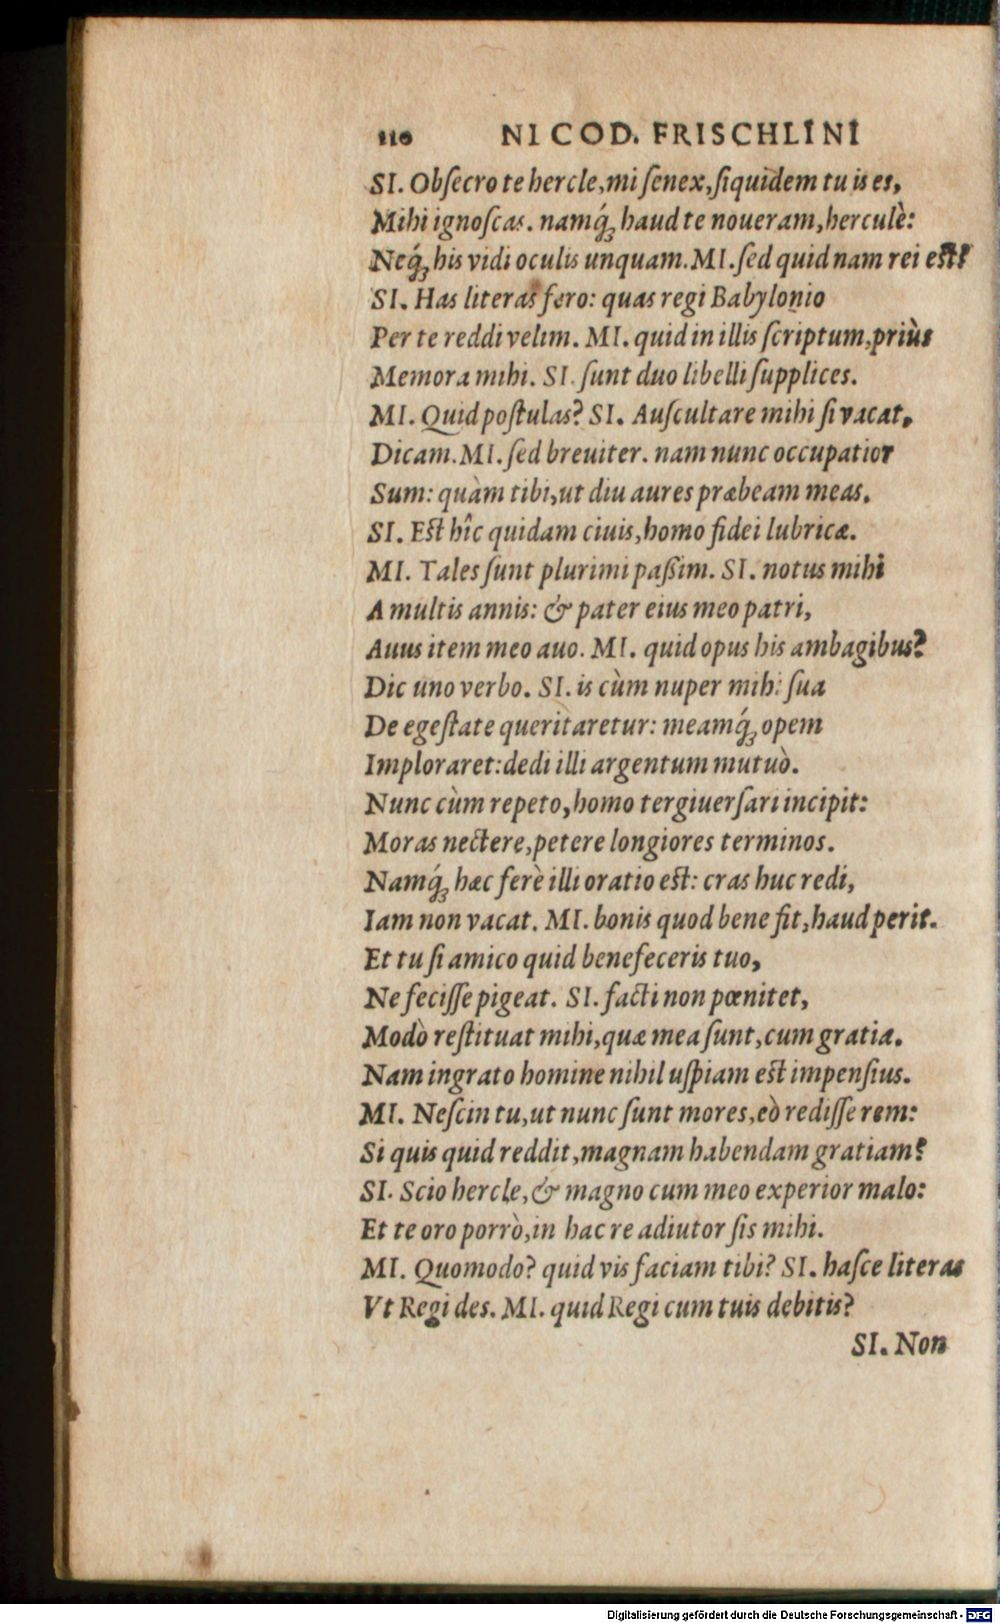 110 NICOD. FRISCHLINI
SI. Obſecro te hercle, mi ſenex, ſiquidem tu is es,
Mihi ignoſcas. namq́ꝫ haud te noueram, herculè:
Neq́ꝫ his vidi oculis unquam. MI. ſed quid nam rei est?
SI. Has literas fero: quas regi Babylonio
Per te reddi velim. MI. quid in illis ſcriptum, priùs
Memora mihi. SI. ſunt duo libelli ſupplices.
MI. Quid poſtulas? SI. Auſcultare mihi ſi vacat,
Dicam. MI. ſed breuiter. nam nunc occupatior
Sum: quàm tibi, ut diu aures præbeam meas.
SI. Eſt hîc quidam ciuis, homo fidei lubricæ.
MI. Tales ſunt plurimi paßim. SI. notus mihi
A multis annis: & pater eius meo patri,
Auus item meo auo. MI. quid opus his ambagibus?
Dic uno verbo. SI. is cùm nuper mihi ſua
De egeſtate queritaretur: meamq́ꝫ opem
Imploraret: dedi illi argentum mutuò.
Nunc cùm repeto, homo tergiuerſari incipit:
Moras nectere, petere longiores terminos.
Namq́ꝫ hæc ferè illi oratio eſt: cras huc redi,
Iam non vacat. MI. bonis quod bene fit, haud perit.
Et tu ſi amico quid benefeceris tuo,
Ne feciſſe pigeat. SI. facti non pœnitet,
Modò reſtituat mihi, quæ mea ſunt, cum gratia.
Nam ingrato homine nihil uſpiam eſt impenſius.
MI. Neſcin tu, ut nunc ſunt mores, eò rediſſe rem:
Si quis quid reddit, magnam habendam gratiam?
SI. Scio hercle, & magno cum meo experior malo:
Et te oro porrò, in hac re adiutor ſis mihi.
MI. Quomodo? quid vis faciam tibi? SI. haſce literas
Vt Regi des. MI. quid Regi cum tuis debitis?
SI. Non
Digitalisierung gefördert durch die Deutsche Forschungsgemeinschaft - DFG